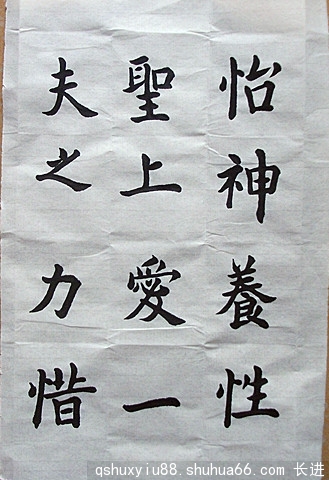 怡神養性
聖上愛一
夫之力惜
qshuxyiu88.shuhua66.com 长进